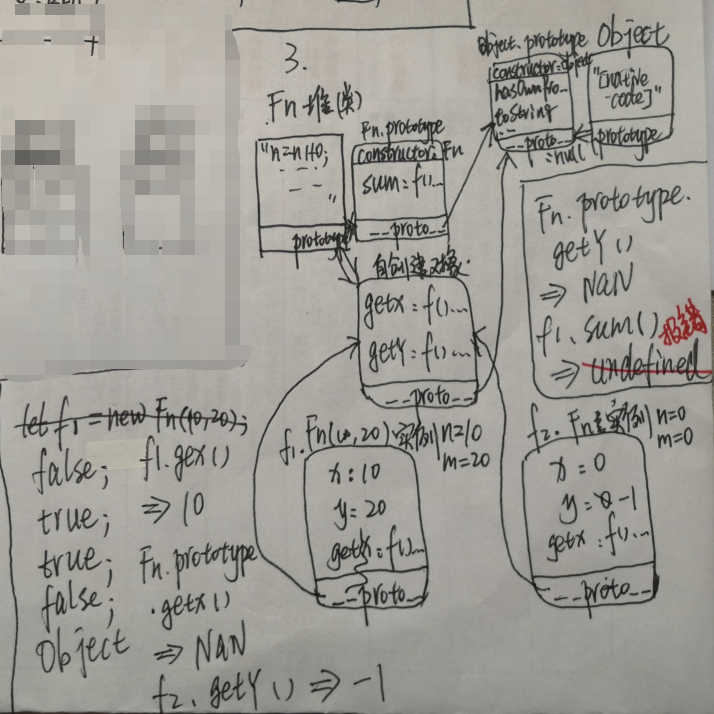 3.
Fn 堆(类)
"n=n||0;
"
prototype
Fn.prototype
constructor: Fn
sum: f()...
__proto__
Object.prototype
constructor: object
hasOwnPro-
toString
...
__proto__
:null
Object
"[native
code]"
prototype
自创建对象.
getx: f()...
getY: f()...
__proto__
Fn.prototype.
getY()
=> NaN
f1.sum() 报错
=> undefined
let f1 = new Fn(10,20);
false;
true;
true;
false;
Object
f1.getx()
=> 10
Fn.prototype
.getx()
=> NaN
f2.getY() => -1
f1. Fn(10,20) 实例 n=10
m=20
x: 10
y: 20
getX: f()...
__proto__
f2. Fn 实例 n=0
m=0
x: 0
y: -1
getx: f()...
__proto__